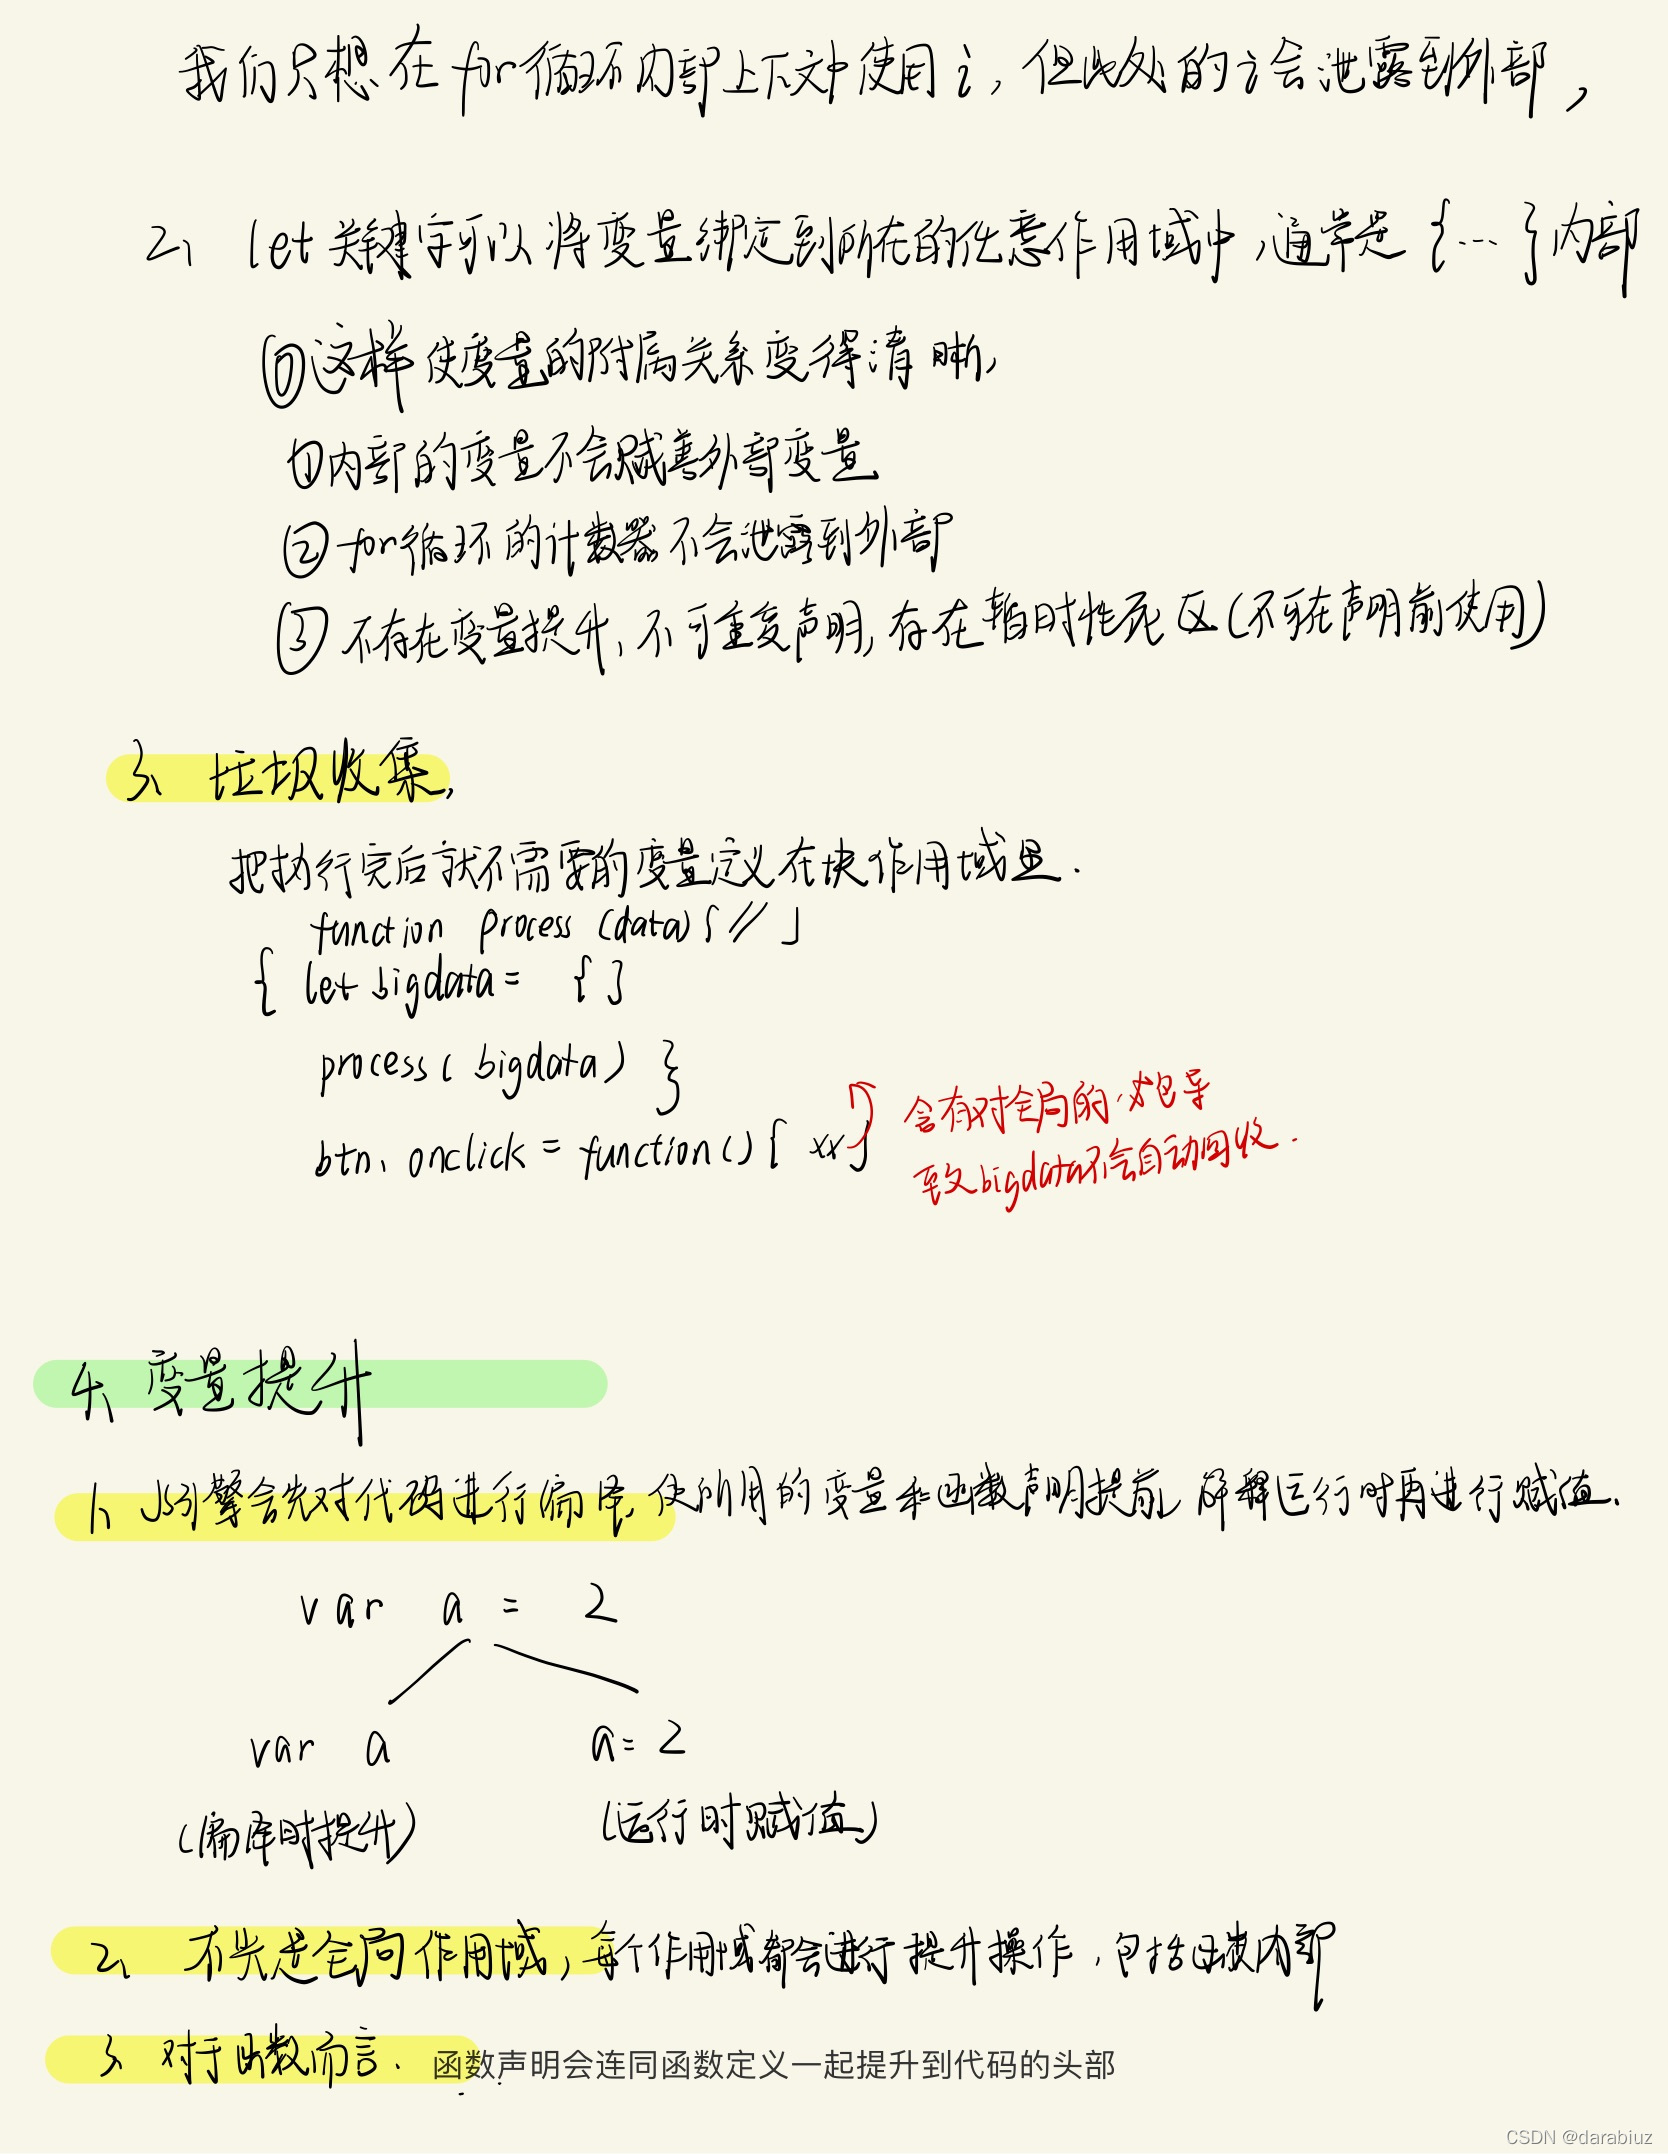 我们只想在for循环内部上下文中使用i，但此处的i会泄露到外部，
2、let关键字可以将变量绑定到所在的任意作用域中，通常是{...}内部
①这样使变量的附属关系变得清晰，
①内部的变量不会赋盖外部变量
②for循环的计数器不会泄露到外部
③不存在变量提升、不可重复声明，存在暂时性死区(不可在声明前使用)
3、垃圾收集，
把执行完后就不需要的变量定义在块作用域里.
function process (data){//}
{ let bigdata = { }
process( bigdata) }
btn. onclick = function(){ xx}
含有对全局的闭包导
致bigdata不会自动回收.
4、变量提升
1、JS引擎会先对代码进行编译，使所用的变量和函数声明提前，解释运行时再进行赋值.
var a = 2
var a a= 2
(编译时提升) (运行时赋值)
2、不光是全局作用域，每个作用域都会进行提升操作，包括函数内部
3、对于函数而言. 函数声明会连同函数定义一起提升到代码的头部
CSDN @darabiuz